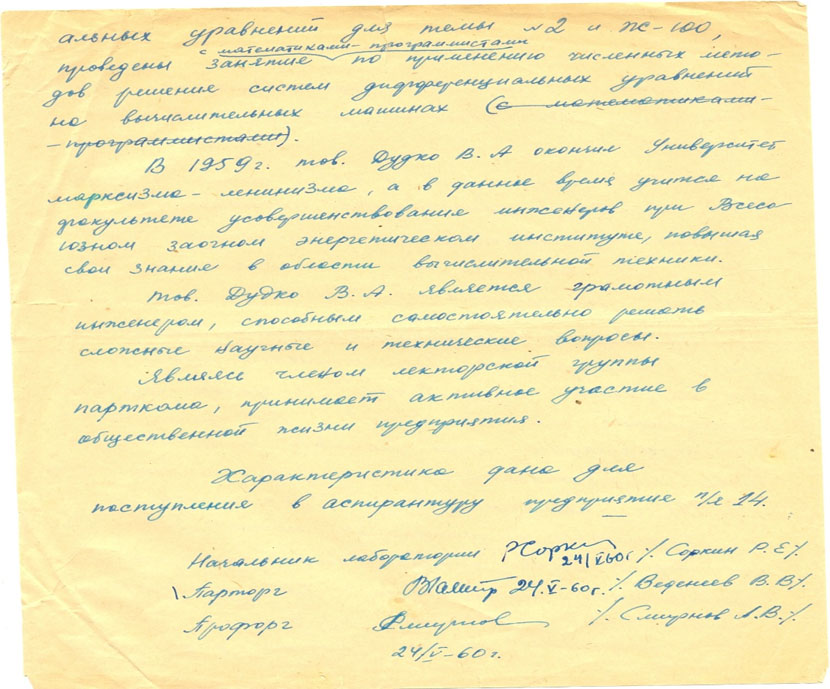 альных уравнений для темы №2 и Ж-100,
с математиками-программистами
проведены занятие по применению численных мето-
дов решение систем дифференциальных уравнений
на вычислительных машинах (с математиками-
-программистами).
В 1959г. тов. Дудко В.А окончил Университет
марксизма-ленинизма, а в данное время учится на
факультете усовершенствования инженеров при Всесо
юзном заочном энергетическом институте, повышая
свои знание в области вычислительной техники.
Тов. Дудко В.А. является грамотным
инженером, способным самостоятельно решать
сложные научные и технические вопросы.
Являясь членом лекторской группы
парткома, принимает активное участие в
общественной жизни предприятия.
Характеристика дана для
поступления в аспирантуру предприятие п/я 14.
Начальник лаборатории 24/V60г ·/. Соркин Р.Е/.
Парторг 24.V-60г. ·/. Веденеев В.В/.
Профорг Смирнов ·/. Смирнов Л.В·/.
24/V-60г.